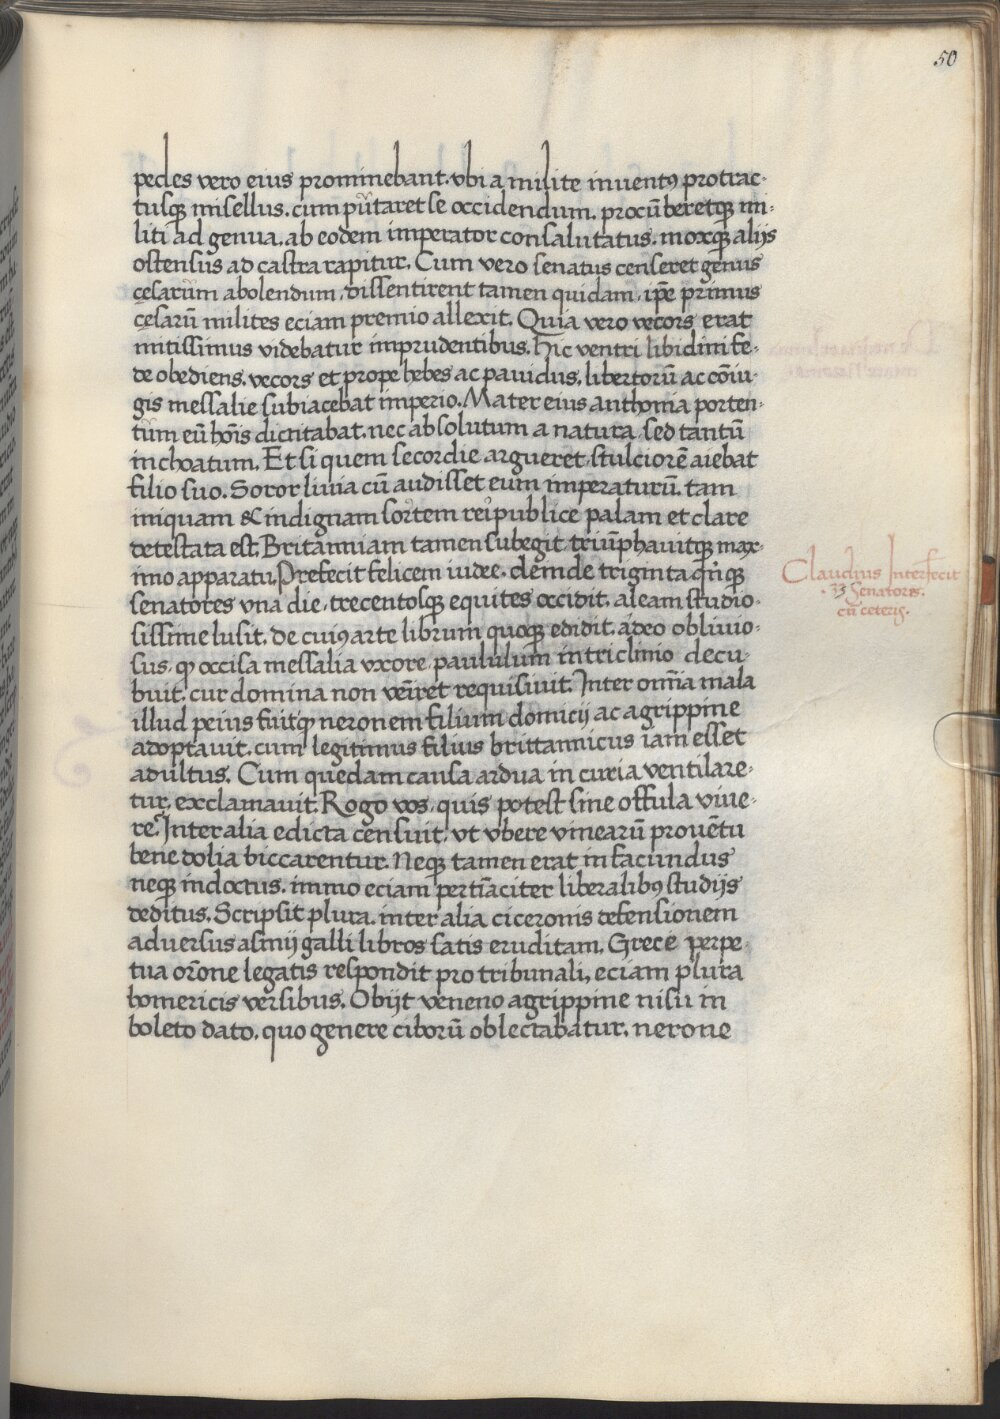 50
pedes vero eius prominebant. vbi a milite inventꝰ protrac-
tusqꝫ misellus. cum putaret se occidendum. procūberetqꝫ mi-
liti ad genua. ab eodem imperator consalutatus. moxqꝫ alijs
ostensus ad castra rapitur. Cum vero senatus censeret genus
cęsarum abolendum. dissentirent tamen quidam. ip̄e primus
cęsarū milites eciam premio allexit. Quia vero vecors erat
mitissimus videbatur imprudentibus. Hic ventri libidini fe-
de obediens. vecors et prope hebes ac pauidus. libertorū ac cōiu-
gis messalie subiacebat imperio. Mater eius anthonia porten-
tum eū hoīs dictitabat. nec absolutum a natura sed tantū
inchoatum. Et si quem secordie argueret. stulciorē aiebat
filio suo. Soror liuia cū audisset eum imperaturū. tam
iniquam & indignam sortem rei publice palam et clare
detestata est. Britanniam tamen subegit. triūphauitqꝫ max-
imo apparatu. Prefecit felicem iudee. deinde triginta qn̄qꝫ
senatores vna die. trecentosqꝫ equites occidit. aleam studio-
sissime lusit. de cuiꝰ arte librum quoqꝫ edidit. adeo obliuio-
sus. qꝫ occisa messalia vxore paululum in triclinio decu-
buit. cur domina non veīret requisiuit. Inter omīa mala
illud peius fuit qꝫ neronem filium domicij ac agrippine
adoptauit. cum legitimus filius brittannicus iam esset
adultus. Cum quedam causa ardua in curia ventilare-
tur. exclamauit. Rogo vos. quis potest sine offula viue-
re? Inter alia edicta censuit. vt vbere vinearū prouētu
bene dolia biccarentur. Neqꝫ tamen erat infacundus
neqꝫ indoctus. immo eciam pertīaciter liberalibꝰ studijs
deditus. Scripsit plura. inter alia ciceronis defensionem
aduersus asinij galli libros satis eruditam. Grece perpe-
tua orōne legatis respondit pro tribunali, eciam plura
homericis versibus. Obijt veneno agrippine nisu in
boleto dato. quo genere ciborū oblectabatur. nerone
Claudius Interfecit
. 35 Senatores.
cū ceteris.